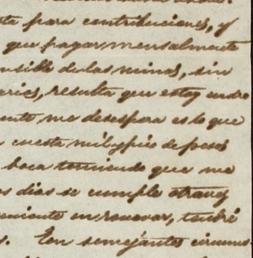 ta para contribuciones, y
que pagar mensualmente
nsible de las minas, sin
resulta que estoy
ente me desespera es lo que
cuesta mil y pico de pesos
boca temiendo que me
s dias se cumple otra vez
eniente en renovar, tendré
s. Con semejantes circuns